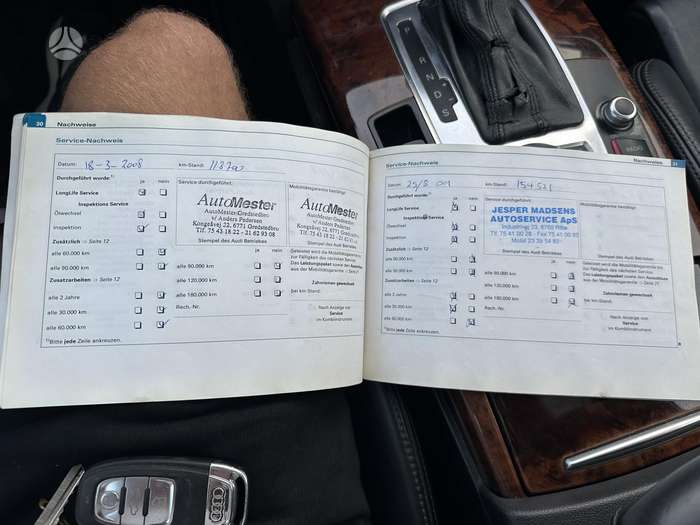 30 Nachweise
Service-Nachweis
Datum: 18-3-2008 km-Stand:
Durchgeführt wurde:¹⁾ ja nein
LongLife Service
Inspektions Service
Ölwechsel
Inspektion
Zusätzlich ⇒ Seite 12
alle 60.000 km
alle 90.000 km
Zusatzarbeiten ⇒ Seite 12
alle 2 Jahre
alle 30.000 km
alle 60.000 km
¹⁾Bitte jede Zeile ankreuzen.
Service durchgeführt:
AutoMester
AutoMester Gredstedbro
v/ Anders Pedersen
Kongeåvej 22, 6771 Gredstedbro
Tlf. 75 43 18 22 - 21 62 93 08
Stempel des Audi Betriebes
ja nein
alle 90.000 km
alle 120.000 km
alle 180.000 km
Rech.-Nr.
Mobilitätsgarantie bestätigt:
AutoMester
AutoMester Gredstedbro
v/ Anders Pedersen
Stempel des Audi Betriebes
Geleistet wird die Mobilitätsgarantie
bis zur Fälligkeit des nächsten Service.
Das Leistungspaket sowie den Ausschluss
aus der Mobilitätsgarantie ⇒ Seite
Zahnriemen gewechselt
bei km-Stand:
Nach Anzeige von
Service
im Kombiinstrument
Nachweise 31
Service-Nachweis
Datum: km-Stand: 154521
Durchgeführt wurde:¹⁾ ja nein
LongLife Service
Inspektions Service
Ölwechsel
Inspektion
Zusätzlich ⇒ Seite 12
alle 60.000 km
alle 90.000 km
Zusatzarbeiten ⇒ Seite 12
alle 2 Jahre
alle 30.000 km
alle 60.000 km
¹⁾Bitte jede Zeile ankreuzen.
Service durchgeführt:
JESPER MADSENS
AUTOSERVICE ApS
Industrivej 23, 6760 Ribe
Tlf 75 41 00 28 - Fax 75 41 00 93
Mobil 23 39 54 80
Stempel des Audi Betriebes
ja nein
alle 90.000 km
alle 120.000 km
alle 180.000 km
Rech.-Nr.
Mobilitätsgarantie bestätigt:
Stempel des Audi Betriebes
Zahnriemen gewechselt
bei km-Stand:
Nach Anzeige von
Service
im Kombiinstrument
P
R
N
D
S
RADIO